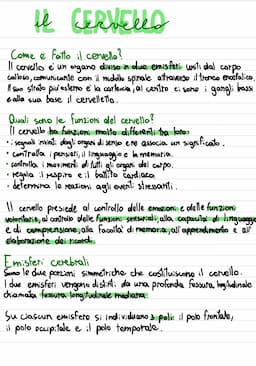 IL CERVELLO
il cervello
Come è fatto il cervello?
Il cervello è un organo diviso in due emisferi uniti dal corpo
calloso, comunicante con il midollo spinale attraverso il tronco encefalico.
Il suo strato più esterno è la corteccia, al centro ci sono i gangli basali
e alla sua base il cervelletto.
Quali sono le funzioni del cervello?
Il cervello ha funzioni molto differenti tra loro:
• segnali inviati dagli organi di senso e ne associa un significato.
• controlla i pensieri, il linguaggio e la memoria.
• controlla i movimenti di tutti gli organi del corpo.
• regola il respiro e il battito cardiaco
• determina le reazioni agli eventi stressanti.
Il cervello presiede al controllo delle emozioni e delle funzioni
volontarie, al controllo delle funzioni sensoriali, alla capacità di linguaggio
e di comprensione, alla facoltà di memoria, all'apprendimento e all'
elaborazione dei ricordi.
Emisferi cerebrali
Sono le due porzioni simmetriche che costituiscono il cervello.
I due emisferi vengono distinti da una profonda fessura longitudinale
chiamata fessura longitudinale mediana.
Su ciascun emisfero si individuano 3 poli: il polo frontale,
il polo occipitale e il polo temporale.